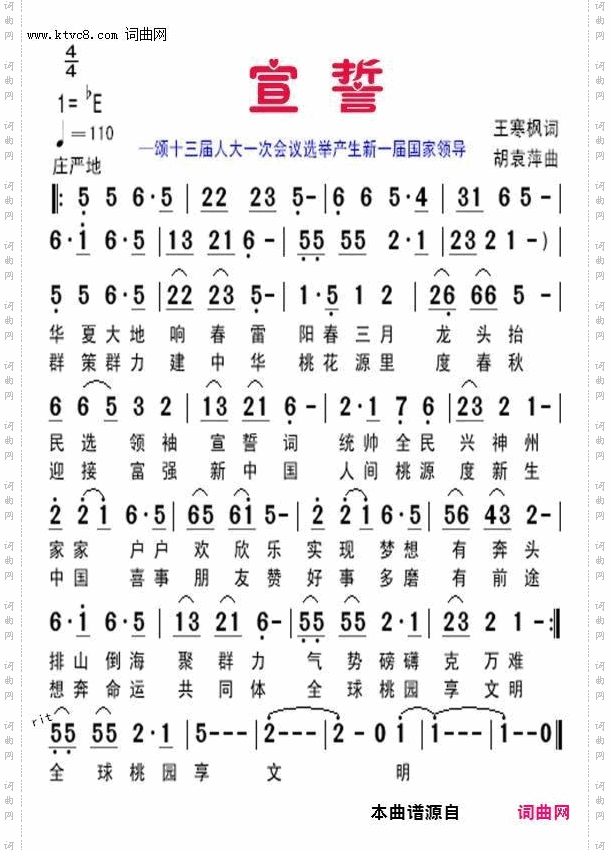 www.ktvc8.com 词曲网
4/4
宣誓
1=♭E
♩=110
王寒枫词
—颂十三届人大一次会议选举产生新一届国家领导
庄严地
胡袁萍曲
‖: 5 5 6·5 | 22 23 5- | 6 6 5·4 | 31 6 5 - |
6·i 6·5 | 13 21 6 - | 55 55 2·1 | 23 2 1 - )
5 5 6·5 | 22 23 5- | 1·5 1 2 | 26 66 5 - |
华夏大地 响春雷 阳春三月 龙头抬
群策群力 建中华 桃花源里 度春秋
6 6 5 3 2 | 13 21 6 - | 2·1 7 6 | 23 2 1 - |
民选领袖 宣誓词 统帅全民 兴神州
迎接富强 新中国 人间桃源 度新生
2 2 1 6·5 | 65 61 5- | 1·2 6·5 | 56 43 2 - |
家家户户 欢欣乐 实现梦想 有奔头
中国喜事 朋友赞 好事多磨 有前途
6·i 6·5 | 13 21 6 - | 55 55 2·1 | 23 2 1 - :‖
排山倒海 聚群力 气势磅礴 克万难
想奔命运 共同体 全球桃园 享文明
rit
55 55 2·1 | 5--- | 2--- | 2-0 0 1 | 1--- | 1--0 ‖
全球桃园享文明
本曲谱源自 词曲网